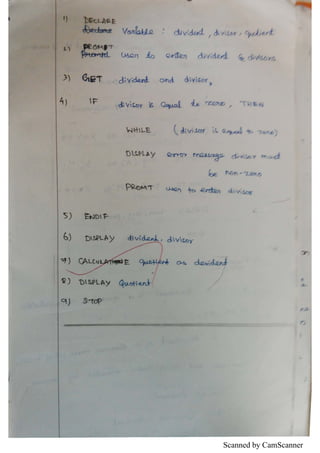 1) DECLARE
Declare Variable : dividend, divisor, Quotient
2) PROMPT
Prompt user to enter dividend & divisors
3) GET dividend and divisor,
4) IF divisor is equal to zero, THEN
WHILE (divisor is equal to zero)
DISPLAY error message divisor must
be non-zero
PROMT user to enter divisor
5) ENDIF
6) DISPLAY dividend, divisor
7) CALCULATE Quotient as
8) DISPLAY Quotient
9) STOP
Scanned by CamScanner